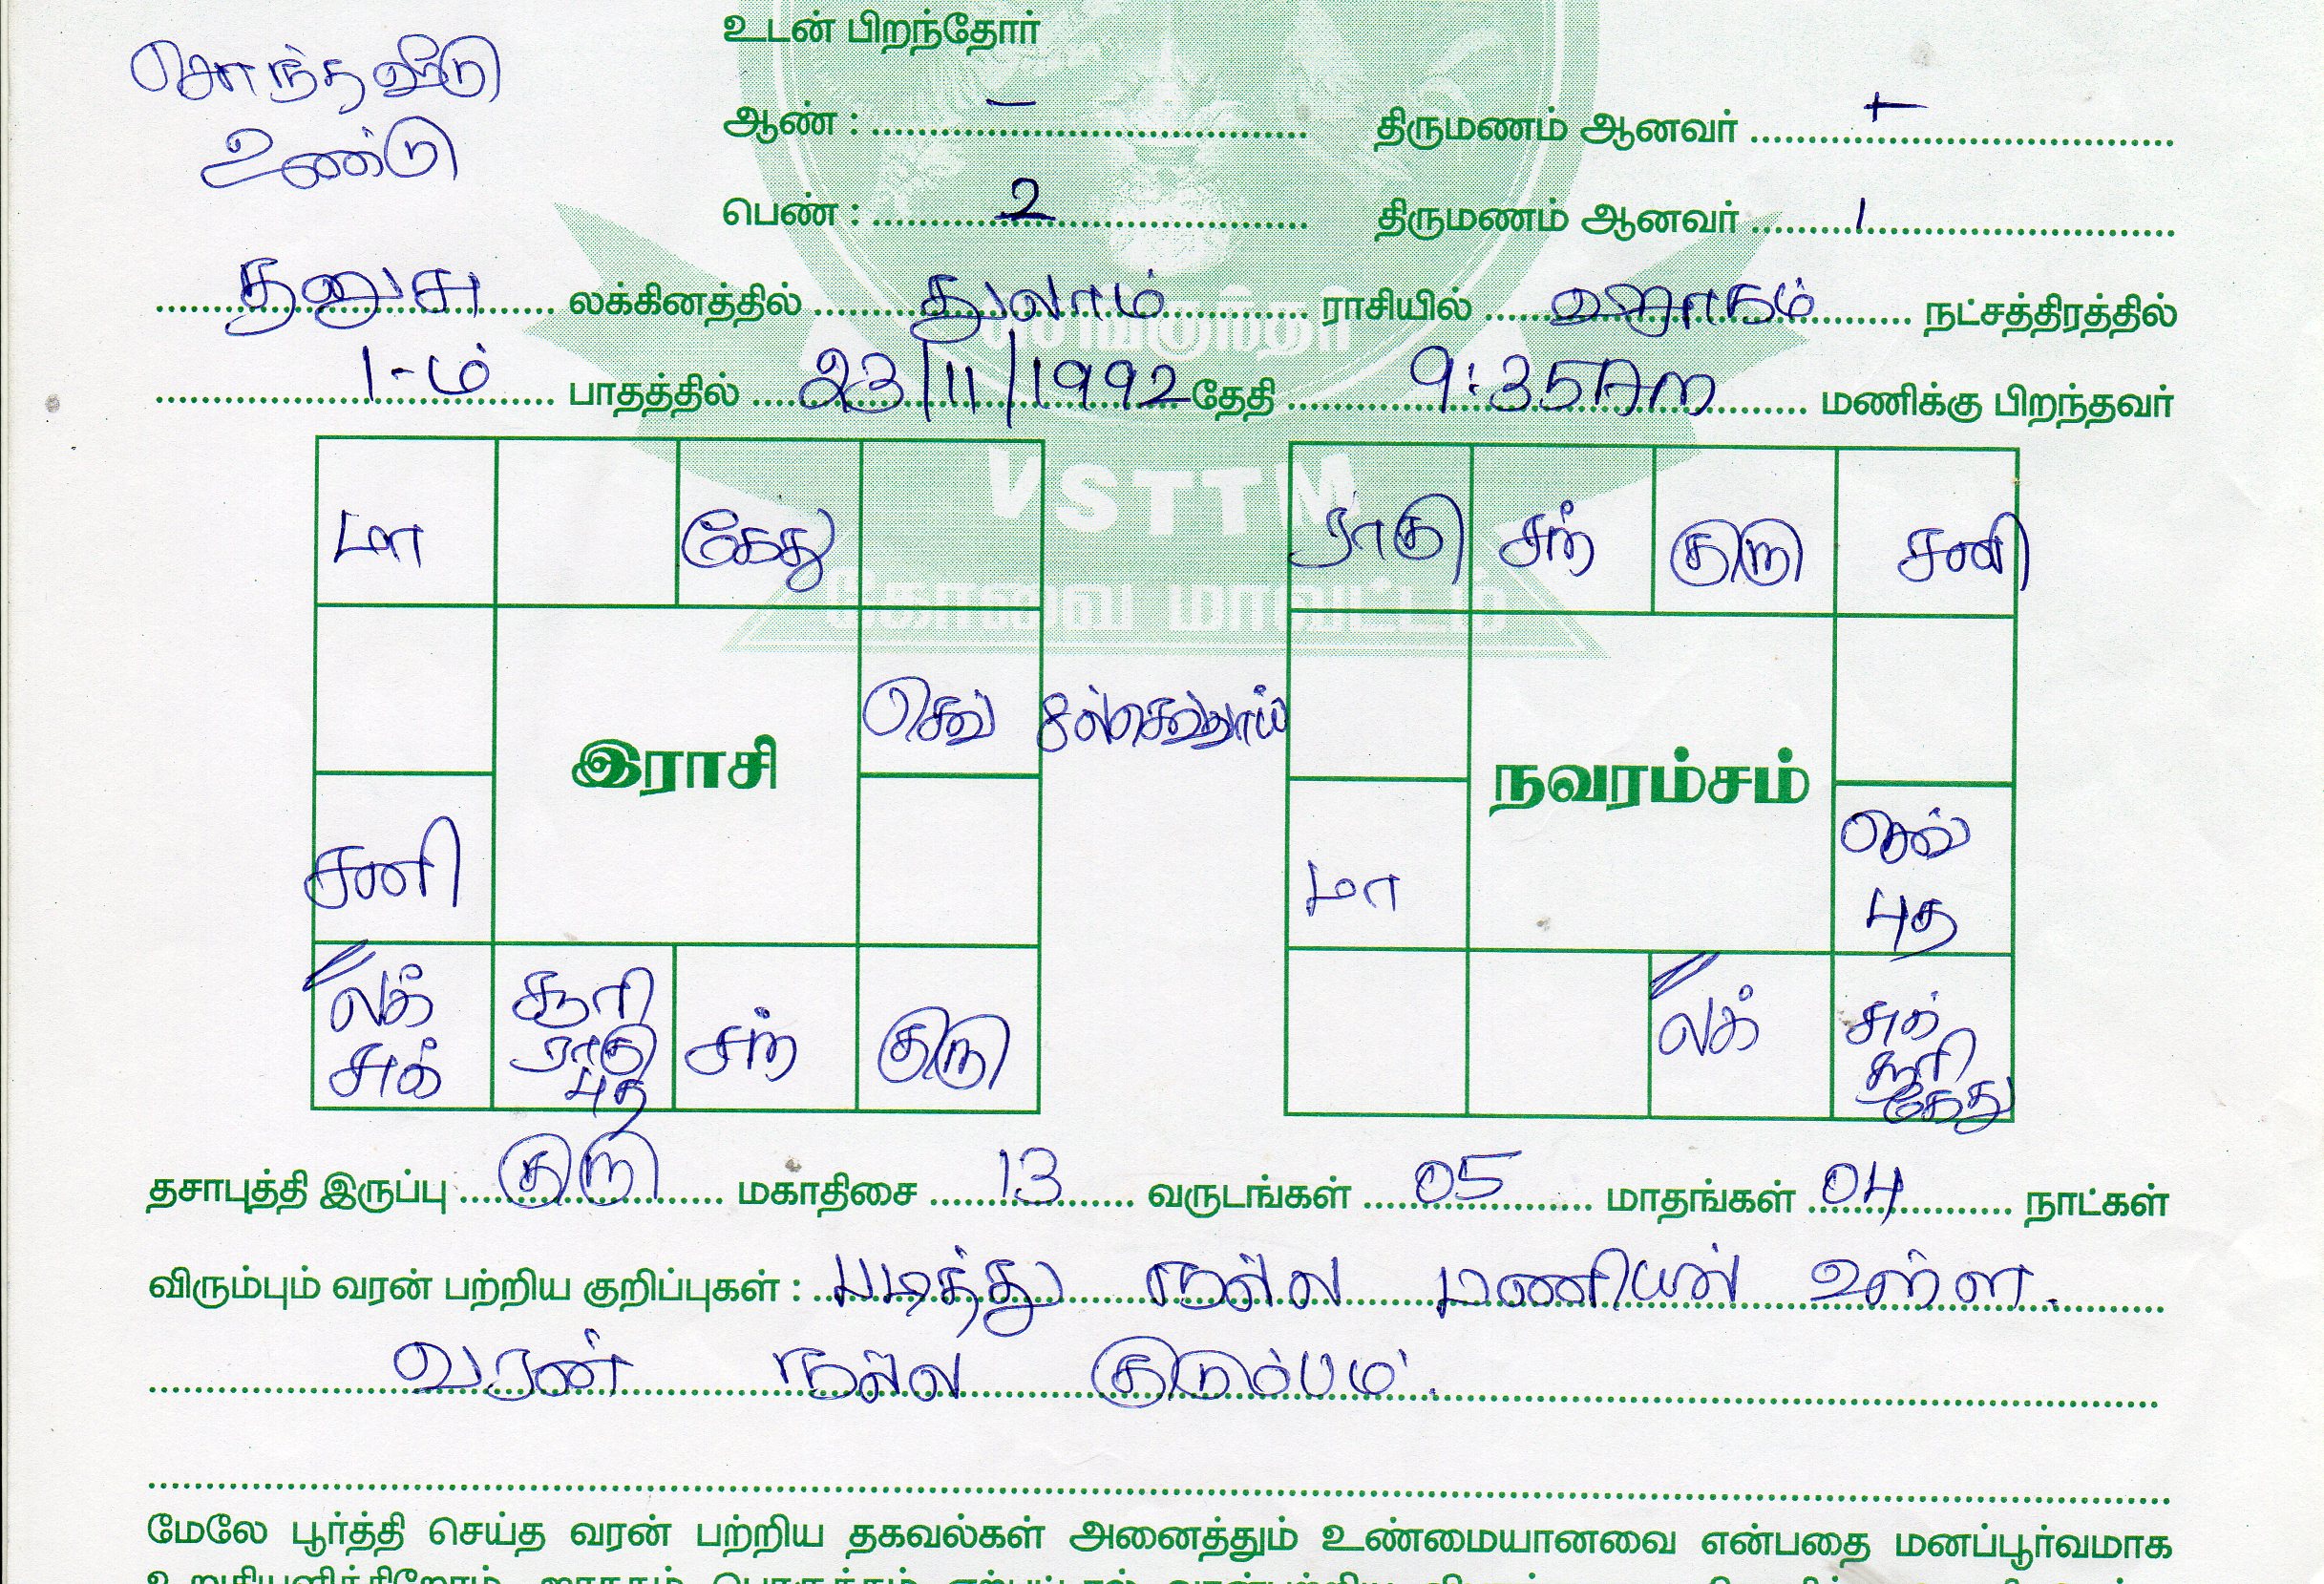 சொந்த வீடு
உண்டு
உடன் பிறந்தோர்
ஆண் : – திருமணம் ஆனவர் –
பெண் : 2 திருமணம் ஆனவர் 1
தனுசு லக்கினத்தில் துலாம் ராசியில் விசாகம் நட்சத்திரத்தில்
1-ம் பாதத்தில் 23/11/1992 தேதி 9:35 Am மணிக்கு பிறந்தவர்
செங்குந்தர்
VSTTM
கோவை மாவட்டம்
மா
கேது
செவ்
8ல் செவ்வாய்
இராசி
சனி
லக்
சுக்
சூரி
ராகு
புத
சந்
குரு
ராகு
சந்
குரு
சனி
நவரம்சம்
மா
செவ்
புத
லக்
சுக்
சூரி
கேது
தசாபுத்தி இருப்பு குரு மகாதிசை 13 வருடங்கள் 05 மாதங்கள் 04 நாட்கள்
விரும்பும் வரன் பற்றிய குறிப்புகள் : படித்து நல்ல பணியில் உள்ள.
வரண் நல்ல குடும்பம்.
மேலே பூர்த்தி செய்த வரன் பற்றிய தகவல்கள் அனைத்தும் உண்மையானவை என்பதை மனப்பூர்வமாக